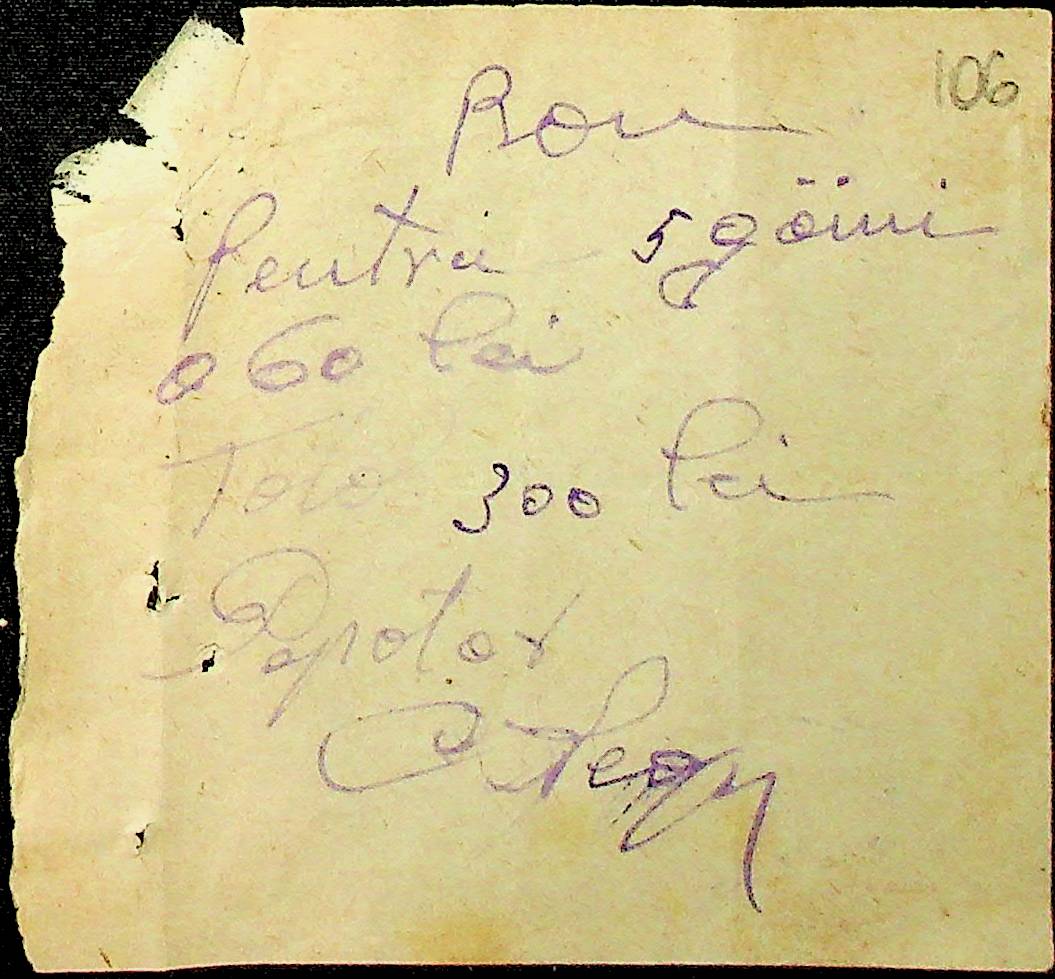 106
Bon
pentru 5 găini
a 60 lei
Total 300 lei